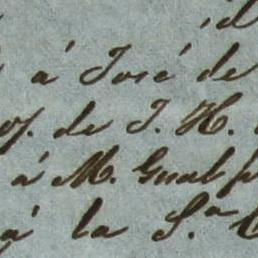 á José de
de J. H.
á M. Gual
á la S.ª